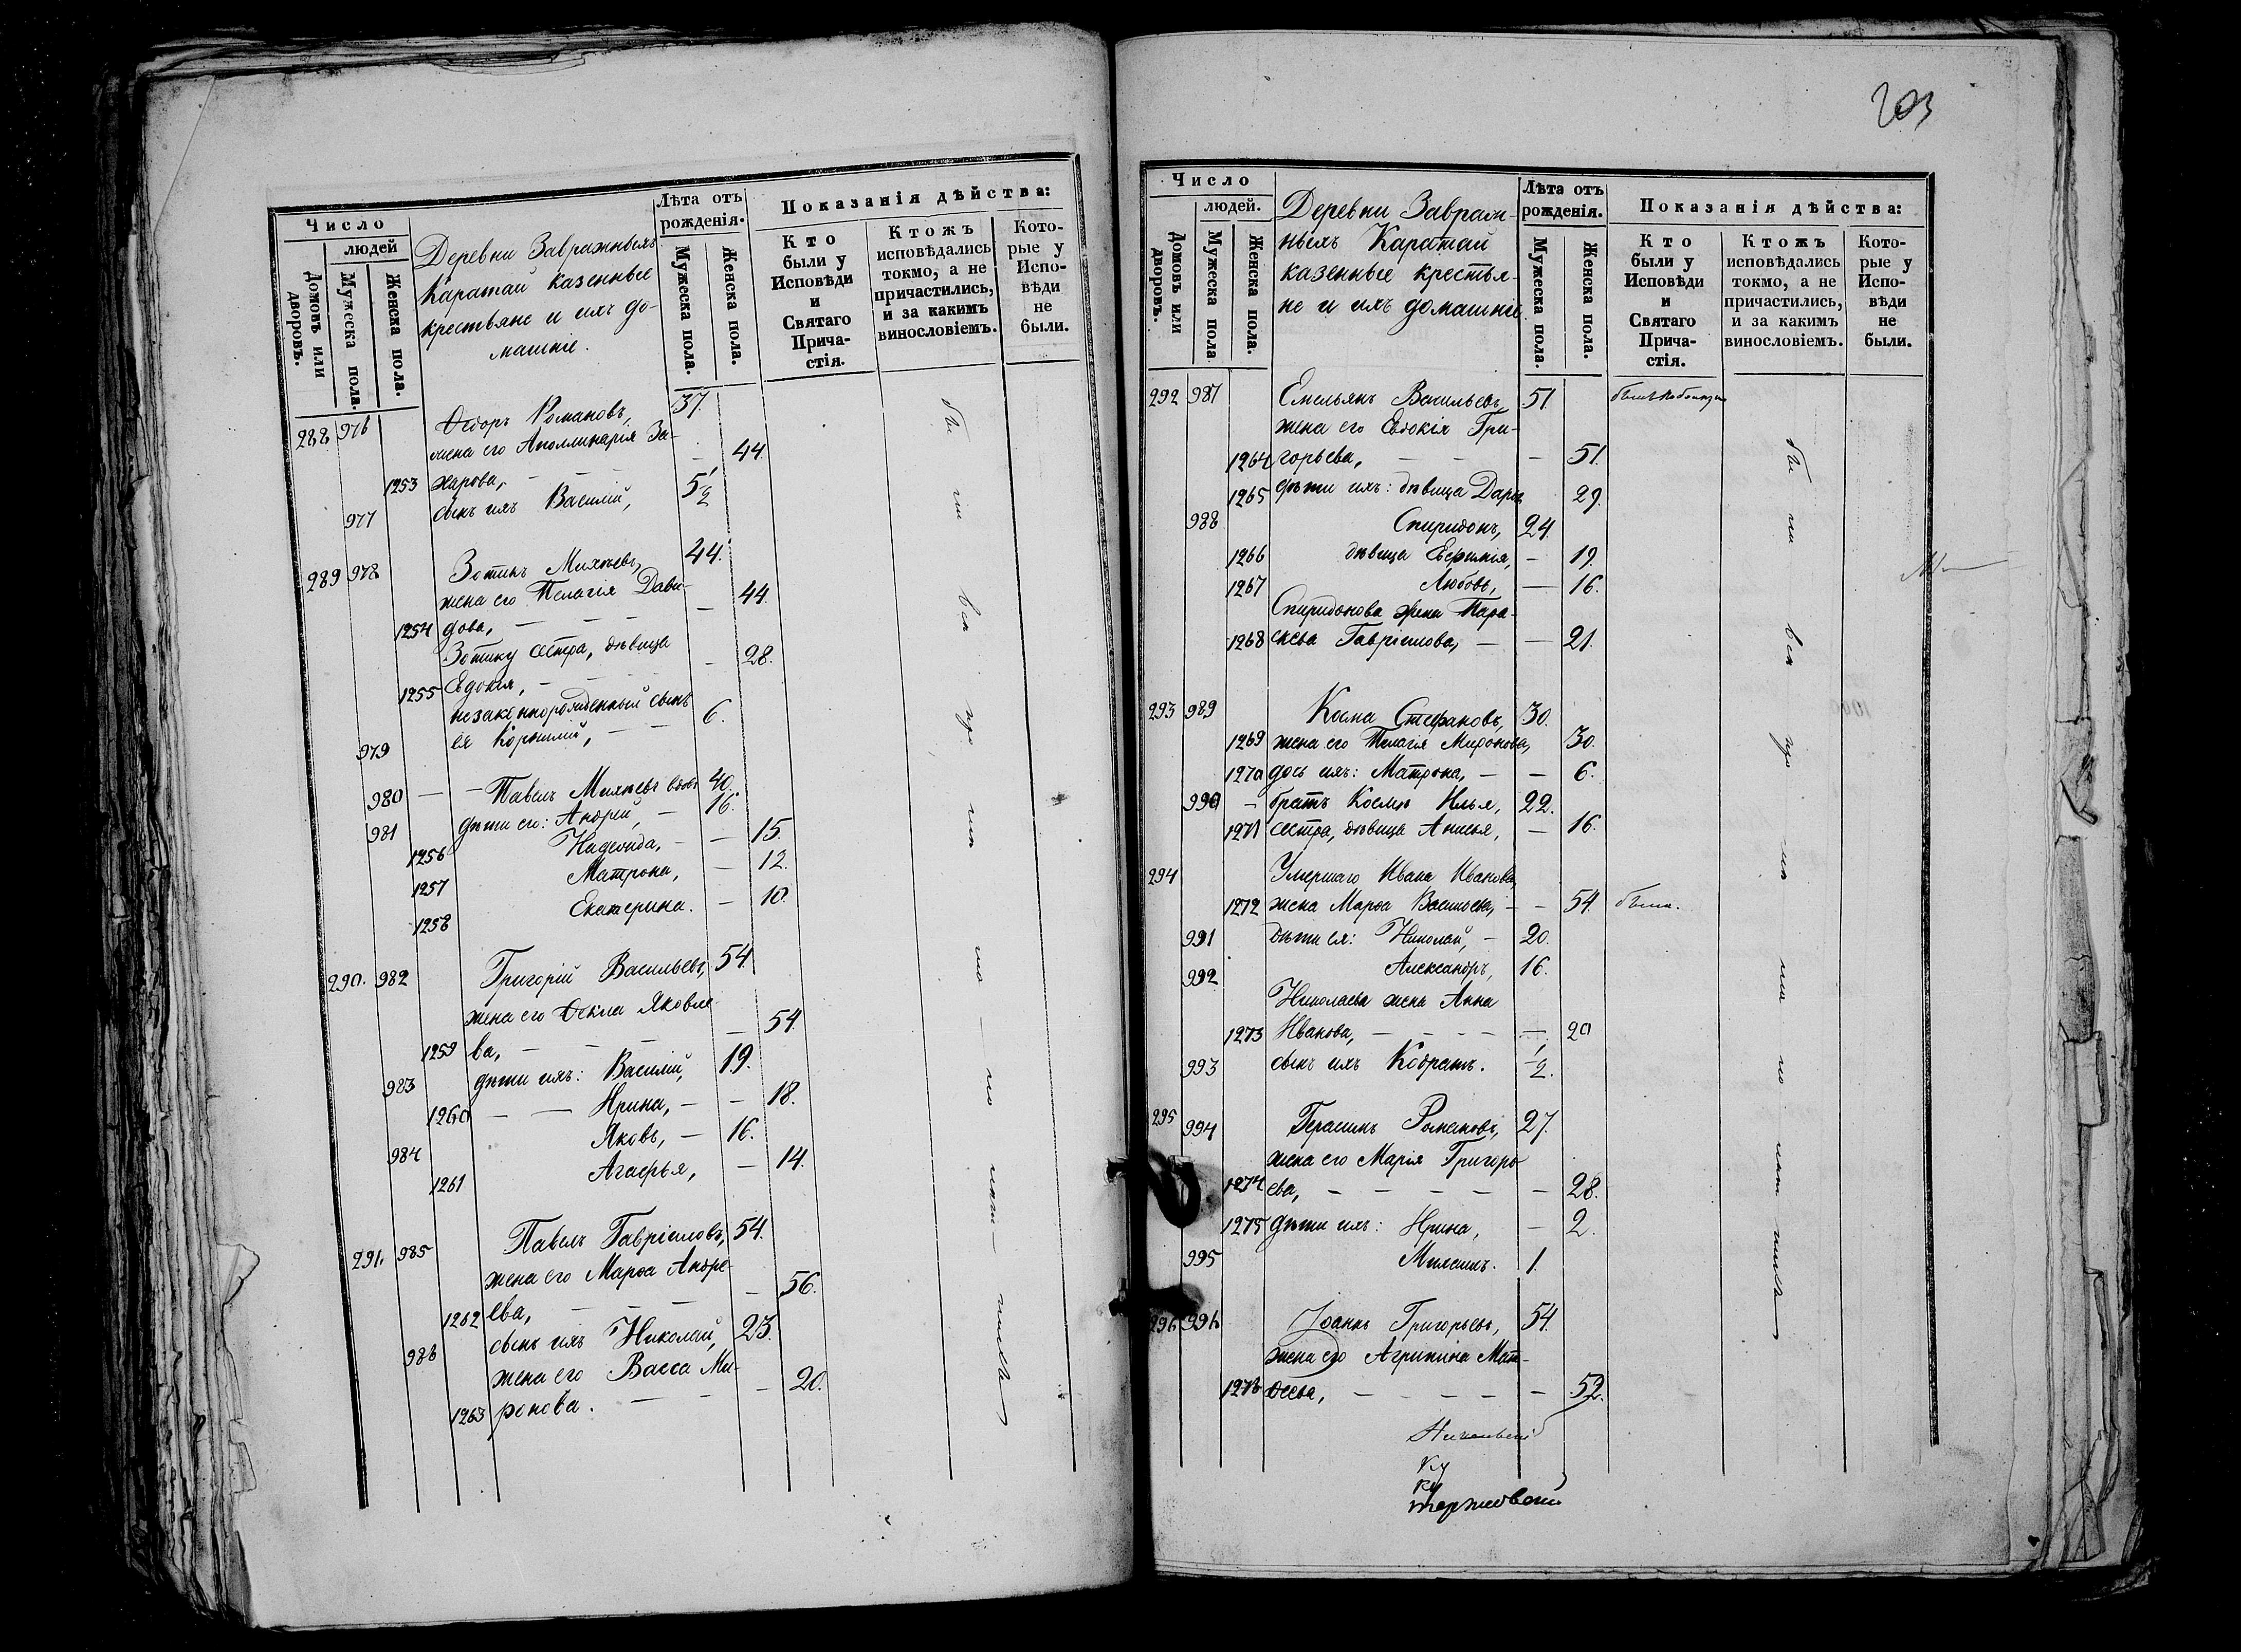 203
Число
людей
Домовъ или дворовъ.
Мужеска пола.
Женска пола.
Деревни Завражныхъ
Каратай казенные
крестьяне и ихъ до-
машніе.
Лѣта отъ
рожденія.
Мужеска пола.
Женска пола.
Показанія дѣйства:
Кто
были у
Исповѣди
и
Святаго
Прича-
стія.
Ктожъ
исповѣдались
токмо, а не
причастились,
и за какимъ
винословіемъ.
Кото-
рые у
Испо-
вѣди
не
были.
288 976 Ѳедоръ Романовъ, 37.
жена его Аполлинарія За-
1253 харова, — — 44.
977 сынъ ихъ Василій, 5 1/2
289 978 Зотикъ Михѣевъ, 44.
жена его Пелагія Дави-
1254 дова, — — — 44.
Зотику сестра, дѣвица
1255 Евдокія, — — 28.
незаконнорожденный сынъ
979 ея Корнилій, — — 6.
980 — — Павелъ Михѣевъ вдовъ 40.
981 дѣти его: Андрей, — 16.
1256 Надежда, — — 15.
1257 Матрона, — 12.
1258 Екатерина. — 10.
290. 982 Григорій Васильевъ, 54.
жена его Ѳекла Яковле-
1259 ва, — — — 54.
983 дѣти ихъ: Василій, 19.
1260 — — Ирина, — — 18.
984 Яковъ, — 16.
1261 Агафья, — 14.
291. 985 Павелъ Гавріиловъ, 54.
жена его Марѳа Андре-
1262 ева, — — — 56.
986 сынъ ихъ Николай, 23.
жена его Васса Ми-
1263 ронова. — — — 20.
Число
людей.
Домовъ или дворовъ.
Мужеска пола
Женска пола.
Деревни Завраж-
ныхъ Каратай
казенные крестья-
не и ихъ домашніе
Лѣта отъ
рожденія.
Мужеска пола.
Женска пола.
Показанія дѣйства:
Кто
были у
Исповѣди
и
Святаго
Прича-
стія.
Ктожъ
исповѣдались
токмо, а не
причастились,
и за какимъ
винословіемъ.
Кото-
рые у
Испо-
вѣди
не
были.
292 987 Емельянъ Васильевъ, 51.
жена его Евдокія Гри-
1264 горьева, — — — 51.
1265 дѣти ихъ: дѣвица Дарья 29.
988 Спиридонъ, 24.
1266 дѣвица Евфимія, — 19.
1267 Любовь, — 16.
Спиридонова жена Пара-
1268 скева Гавріилова, — — 21.
293 989 Косма Стефановъ, 30.
1269 жена его Пелагія Миронова, 30.
1270 дочь ихъ: Матрона, — — 6.
990 — братъ Космы Илья, 22.
1271 сестра, дѣвица Анисья, — 16.
294 Умершаго Ивана Иванова
1272 жена Марѳа Васильева, — — 54. была.
991 дѣти ея: Николай, — 20.
992 Александръ, 16.
Николаева жена Анна
1273 Иванова, — — — — — 20
993 сынъ ихъ Кодратъ. 1/2.
295 994 Герасимъ Романовъ, 27.
жена его Марія Григорь-
1274 ева, — — — — — 28.
1275 дѣти ихъ: Ирина, — 2.
995 Михаилъ. 1.
296 996 Іоаннъ Григорьевъ, 54.
жена его Агрипина Мат-
1276 ѳеева, — — — — — 52.